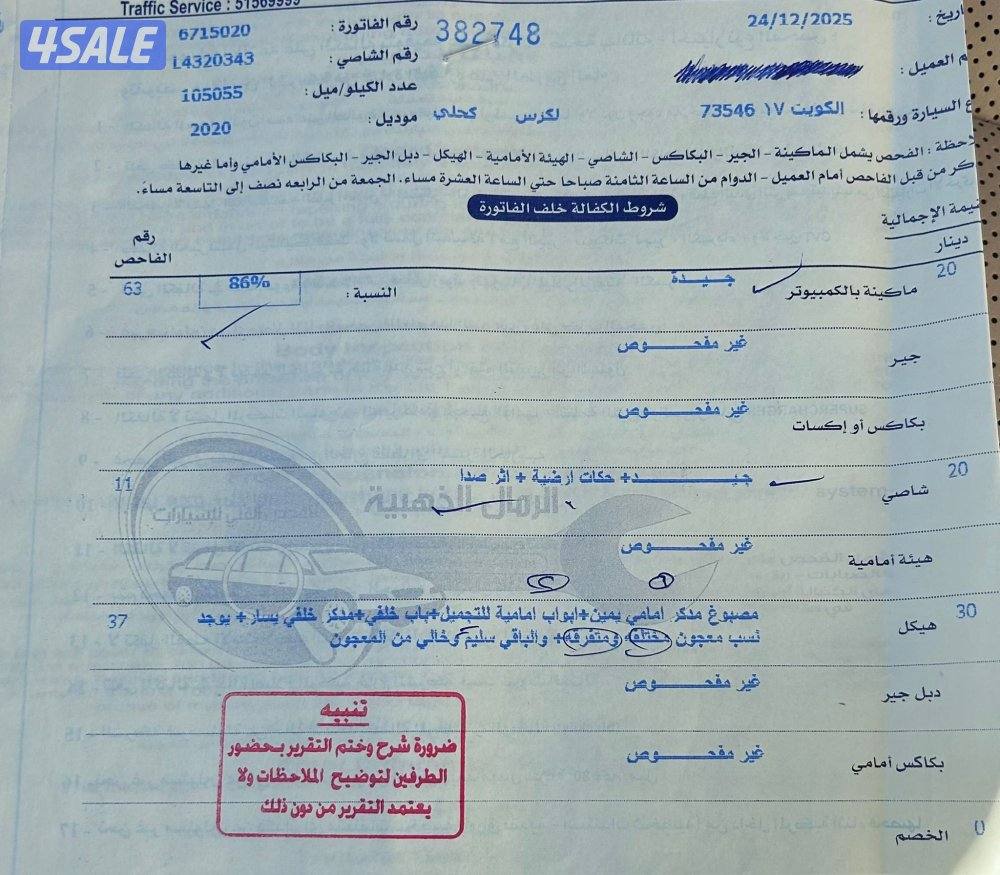 Traffic Service : 51569999
4SALE
التاريخ : 24/12/2025
382748
رقم الفاتورة : 6715020
العميل :
رقم الشاصي : L4320343
عدد الكيلو/ميل : 105055
السيارة ورقمها : الكويت ١٧ 73546 لكزس كحلي
موديل : 2020
الفحص يشمل الماكينة - الجير - البكاكس - الشاصي - الهيئة الأمامية - الهيكل - دبل الجير - البكاكس الأمامي وأما غيرها
من قبل الفاحص أمام العميل - الدوام من الساعة الثامنة صباحا حتي الساعة العشرة مساء. الجمعة من الرابعه نصف إلى التاسعة مساءً.
شروط الكفالة خلف الفاتورة
القيمة الإجمالية
دينار
رقم الفاحص
20 ماكينة بالكمبيوتر جيدة النسبة : 86% 63
جير غير مفحوص
بكاكس أو إكسات غير مفحوص
20 شاصي جيد + حكات ارضية + اثر صدا 11
الرمال الذهبية
هيئة أمامية غير مفحوص
30 هيكل مصبوغ مدكر امامي يمين+ابواب امامية للتجميل+باب خلفي+مدكر خلفي يسار + يوجد 37
نسب معجون مختلفه ومتفرقه+ والباقي سليم وخالي من المعجون
دبل جير غير مفحوص
بكاكس أمامي غير مفحوص
0 الخصم
تنبيه
ضرورة شرح وختم التقرير بحضور
الطرفين لتوضيح الملاحظات ولا
يعتمد التقرير من دون ذلك